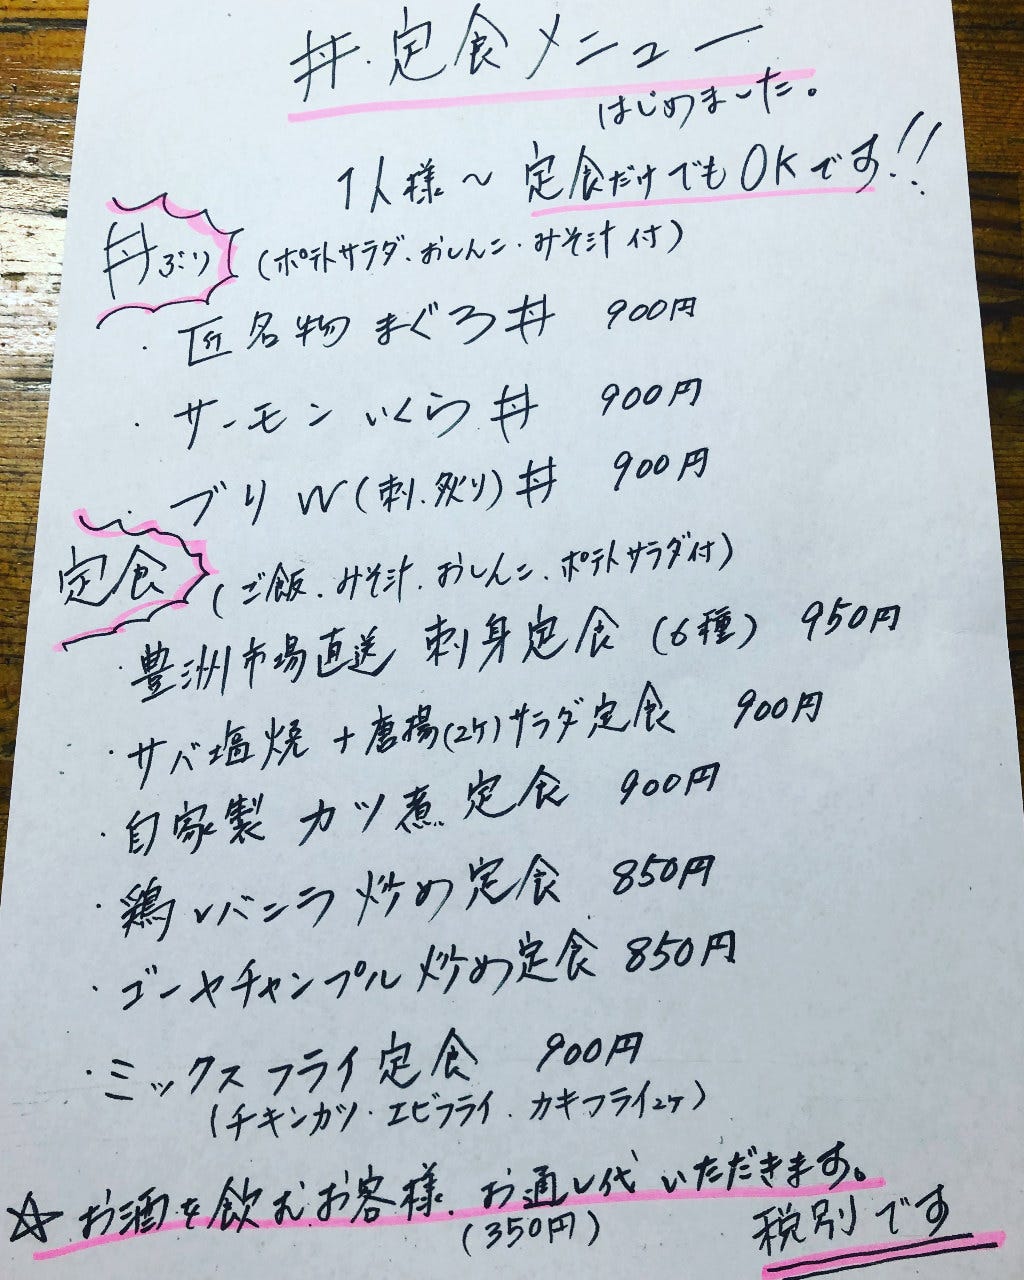 丼・定食メニュー
はじめました。
1人様～定食だけでもOKです!!
丼ぶり (ポテトサラダ、おしんこ・みそ汁付)
・匠名物 まぐろ丼 900円
・サーモンいくら丼 900円
・ブリW(刺、炙り)丼 900円
定食 (ご飯、みそ汁、おしんこ、ポテトサラダ付)
・豊洲市場直送 刺身定食(6種) 950円
・サバ塩焼+唐揚(2ケ)サラダ定食 900円
・自家製 カツ煮定食 900円
・鶏レバニラ炒め定食 850円
・ゴーヤチャンプル炒め定食 850円
・ミックスフライ定食 900円
(チキンカツ・エビフライ・カキフライ2ケ)
☆お酒を飲むお客様、お通し代いただきます。
(350円)
税別です